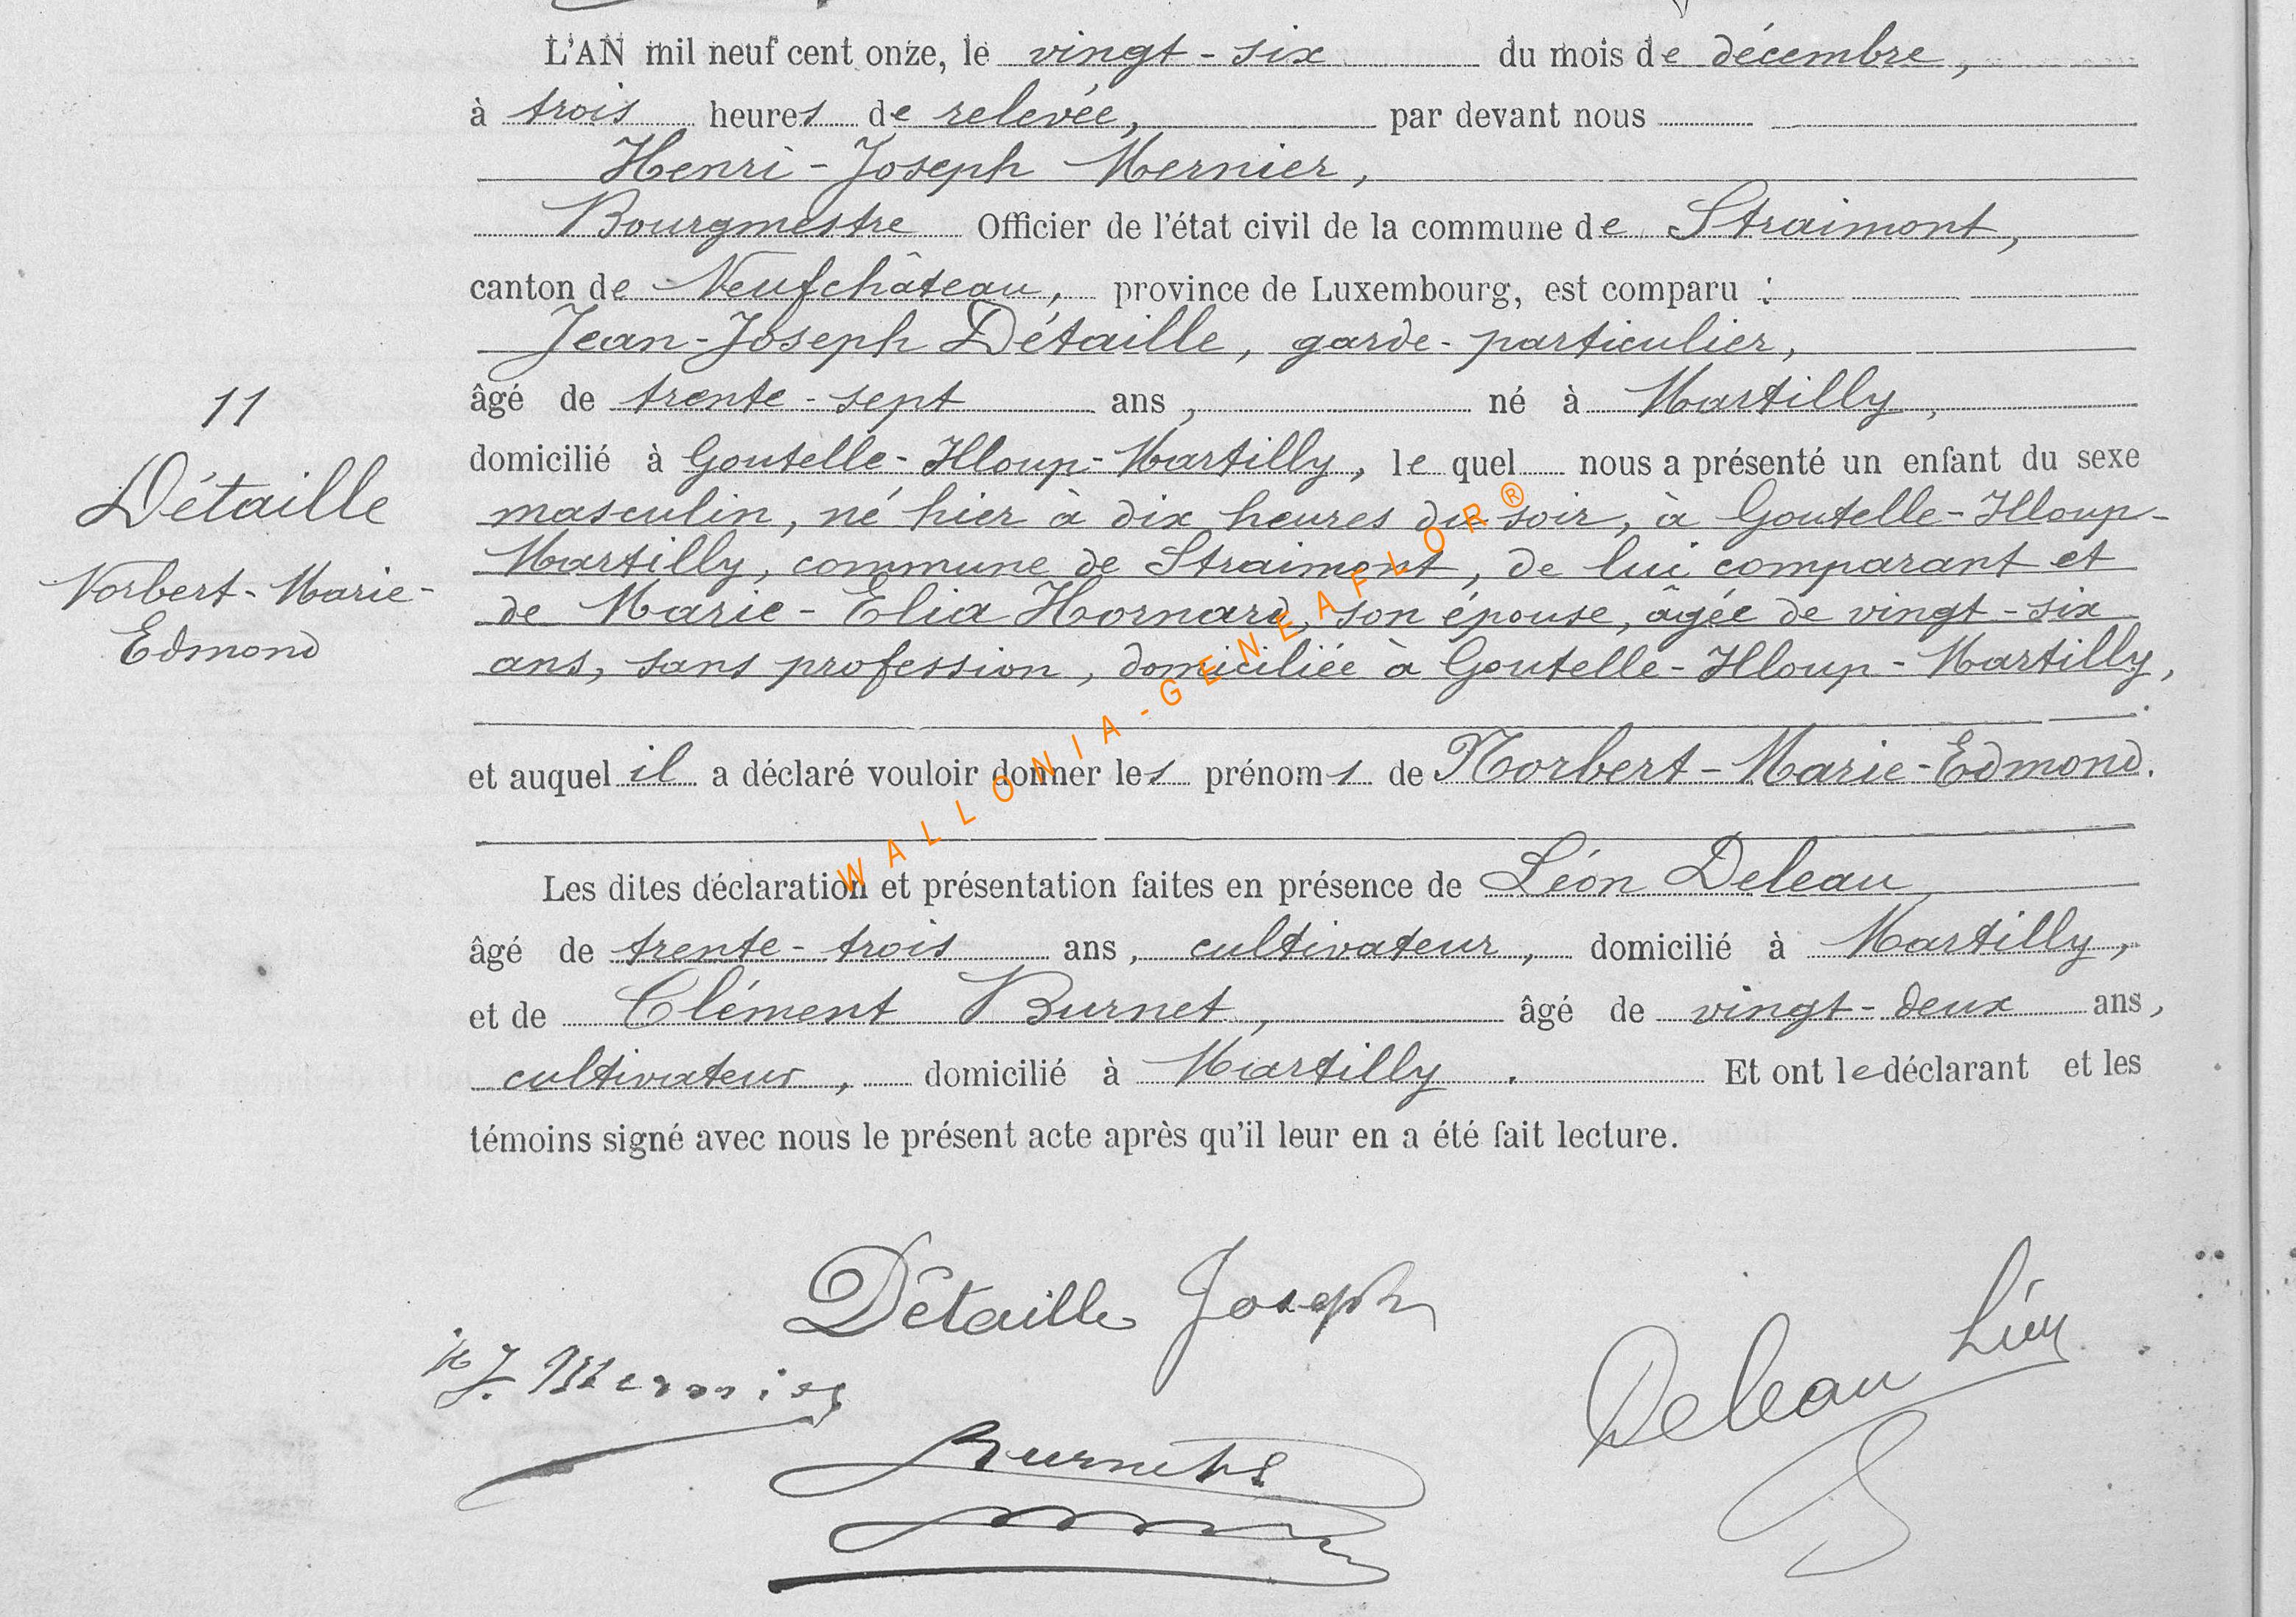 L'AN mil neuf cent onze, le vingt-six du mois de décembre,
à trois heures de relevée, par devant nous
Henri-Joseph Mernier,
Bourgmestre Officier de l'état civil de la commune de Straimont,
canton de Neufchâteau, province de Luxembourg, est comparu :
Jean-Joseph Détaille, garde-particulier,
âgé de trente-sept ans, né à Martilly,
domicilié à Goutelle-Hloup-Martilly, le quel nous a présenté un enfant du sexe
masculin, né hier à dix heures du soir, à Goutelle-Hloup-
Martilly, commune de Straimont, de lui comparant et
de Marie-Elia Hornard, son épouse, âgée de vingt-six
ans, sans profession, domiciliée à Goutelle-Hloup-Martilly,
et auquel il a déclaré vouloir donner les prénoms de Norbert-Marie-Edmond.
Les dites déclaration et présentation faites en présence de Léon Deleau
âgé de trente-trois ans, cultivateur, domicilié à Martilly,
et de Clément Burnet, âgé de vingt-deux ans,
cultivateur, domicilié à Martilly. Et ont le déclarant et les
témoins signé avec nous le présent acte après qu'il leur en a été fait lecture.
11
Détaille
Norbert-Marie-
Edmond
WALLONIA-GENEAFLOR®
Détaille Joseph
J. Mernier
Deleau Léon
Burnet